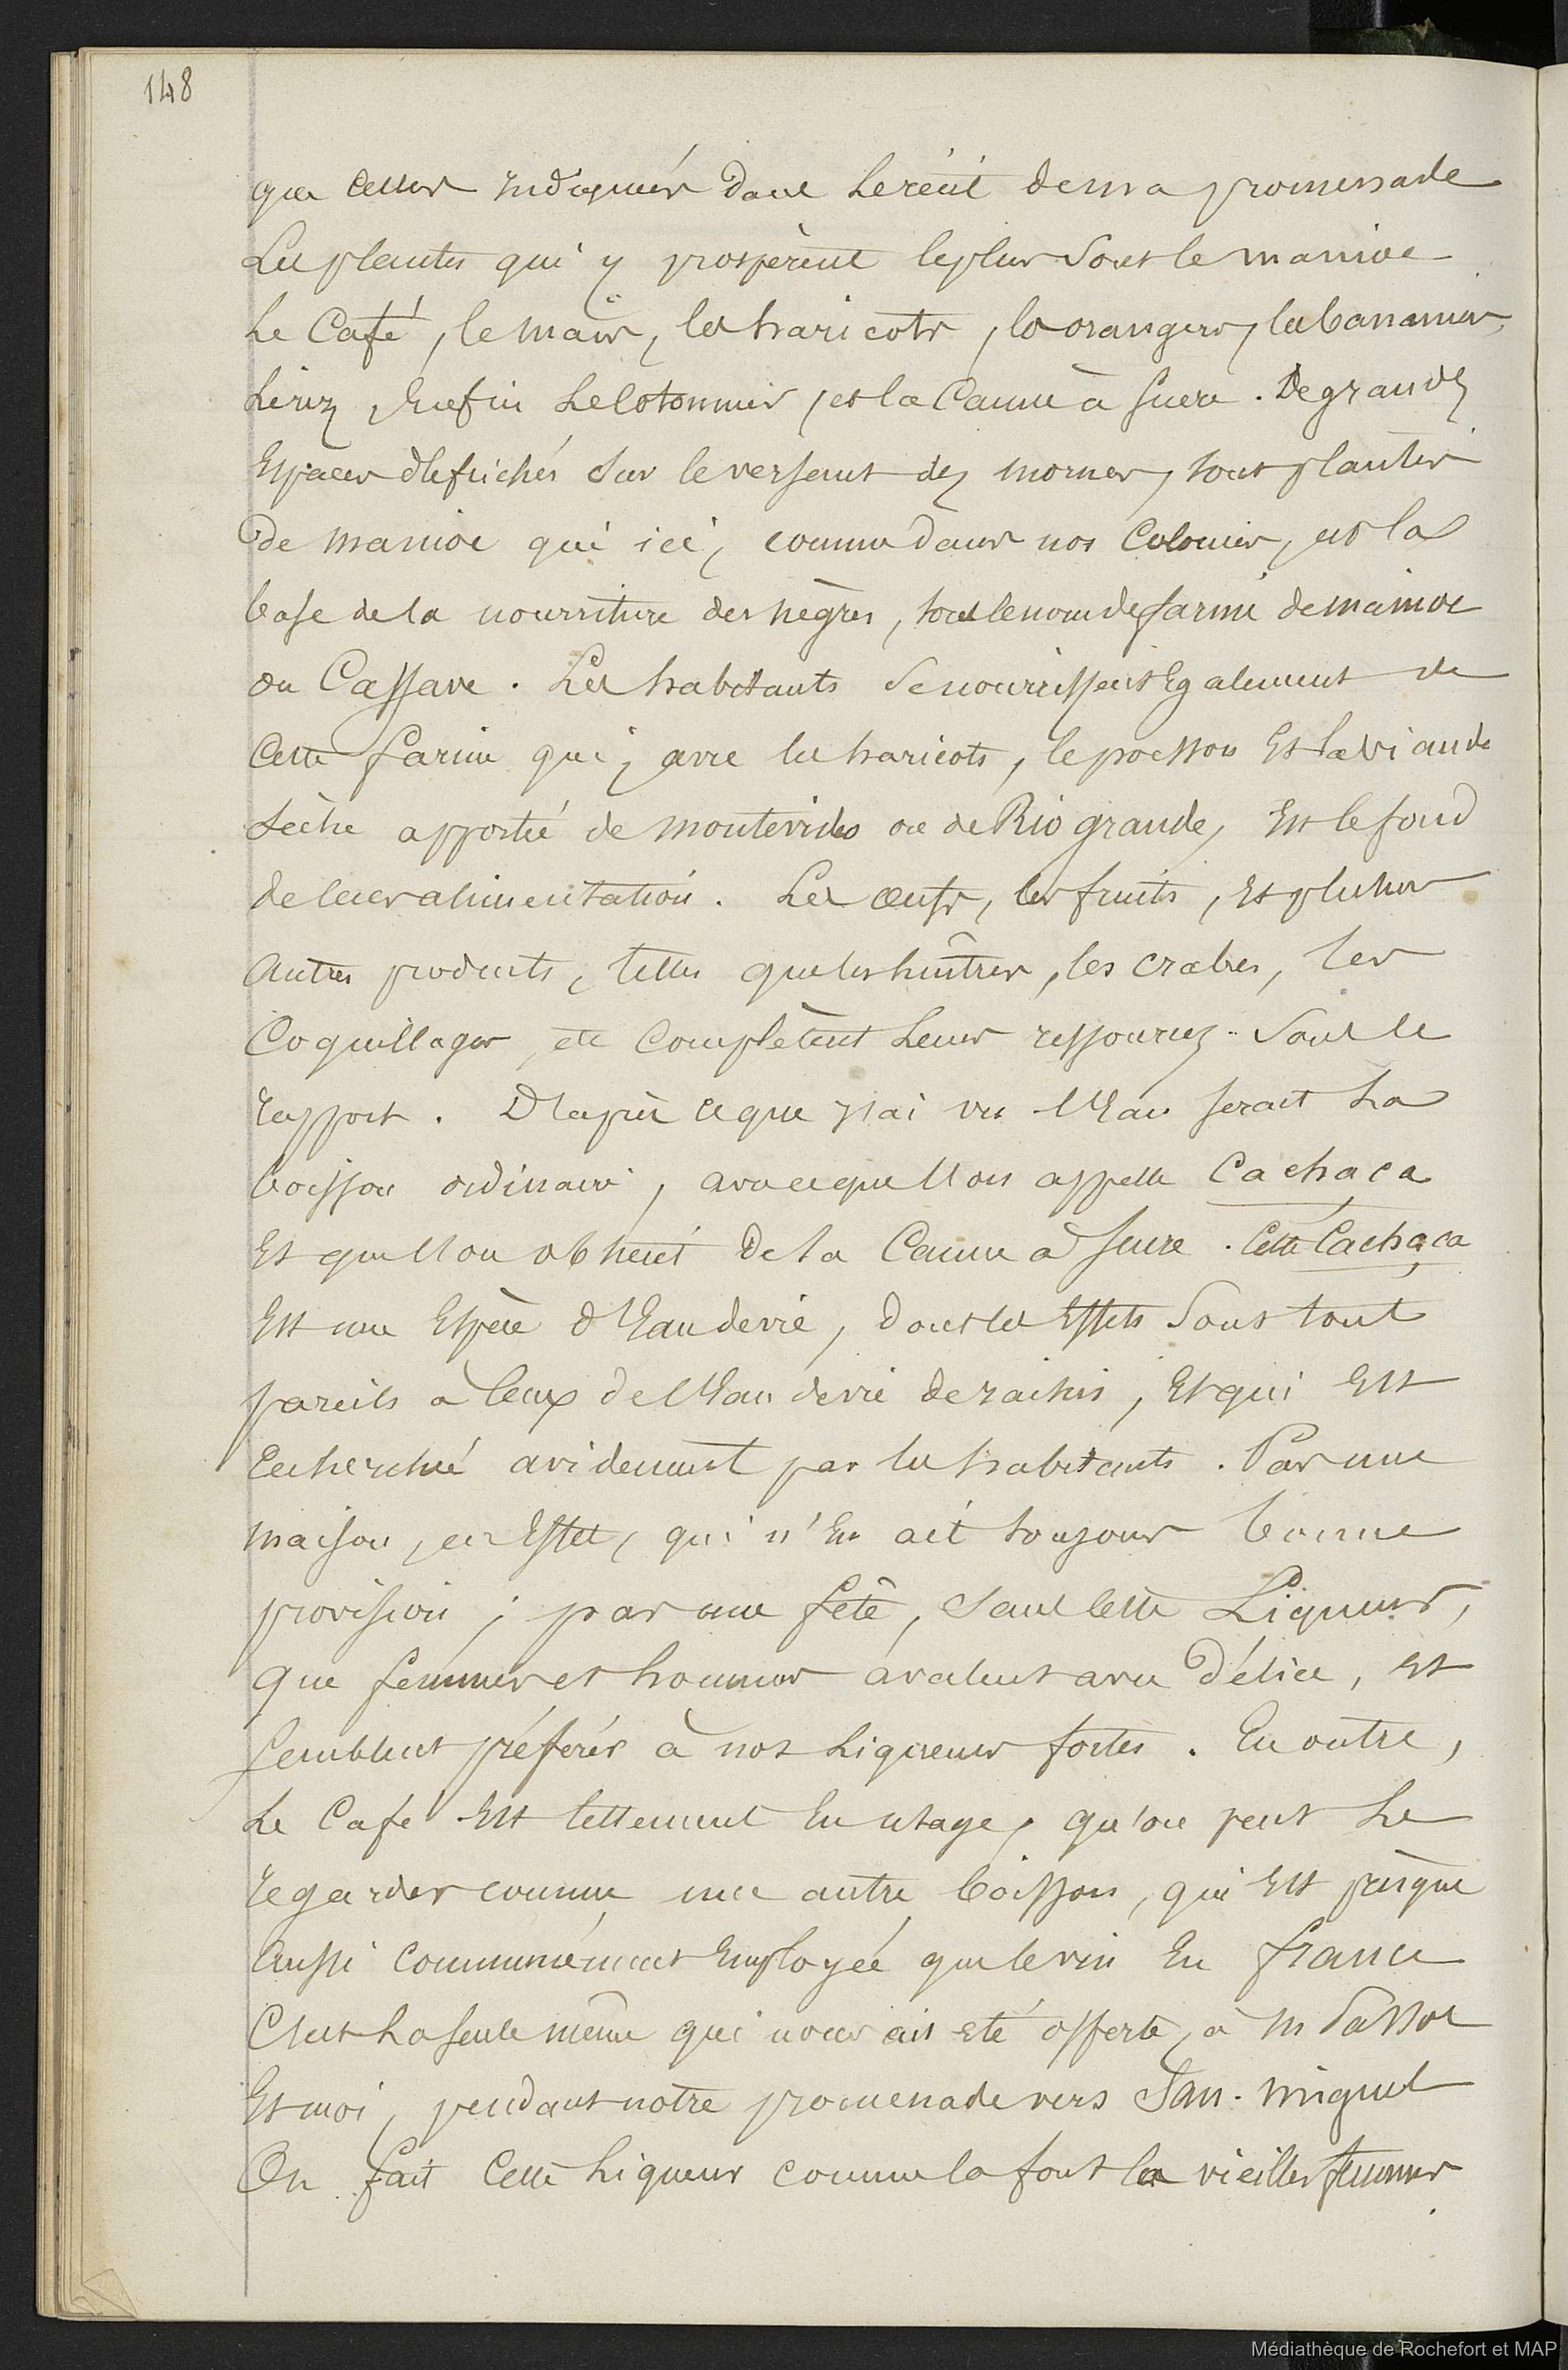 148
que celles indiquées dans le récit de ma promenade
Les plantes qui y prospèrent le plus sont le manioc
Le Café, le maïs, les haricots, les orangers, les bananiers,
Le riz, enfin le Cotonnier, et la Canne à sucre. De grands
Espaces défrichés sur le versant des mornes, sont plantés
De manioc qui ici, comme dans nos Colonies, est la
base de la nourriture des nègres, sous le nom de farine de manioc
ou Cassave. Les habitants se nourrissent Egalement de
Cette farine qui, avec les haricots, le poisson Et la viande
Sèche apportée de montevideo ou de Rio grande, Est le fond
de leur alimentation. Les œufs, les fruits, Et plusieurs
Autres produits, telles que les huîtres, les crabes, les
Coquillages, etc complètent leurs ressources sous ce
rapport. D'après ce que j'ai vu l'Eau serait la
boisson ordinaire, avec ce que l'on appelle Cachaca
Et que l'on obtient de la Canne à sucre. Cette Cachaça
Est une Espèce d'Eau de vie, dont les Effets sont tout
pareils à ceux de l'Eau de vie de raisin, Et qui Est
recherchée avidement par les habitants. Pas une
maison, en Effet, qui n'En ait toujours bonne
provision ; pas une fête, sans cette Liqueur,
que femmes et hommes avalent avec délice, et
semblent préférer à nos Liqueurs fortes. En outre,
Le Café Est tellement En usage, qu'on peut Le
regarder comme une autre boisson, qui Est presque
Aussi communément Employée que le vin En france
C'est la seule même qui nous ait été offerte, à M
Et moi, pendant notre promenade vers San-miguel
On fait Cette Liqueur comme la font les vieilles femmes
Médiathèque de Rochefort et MAP